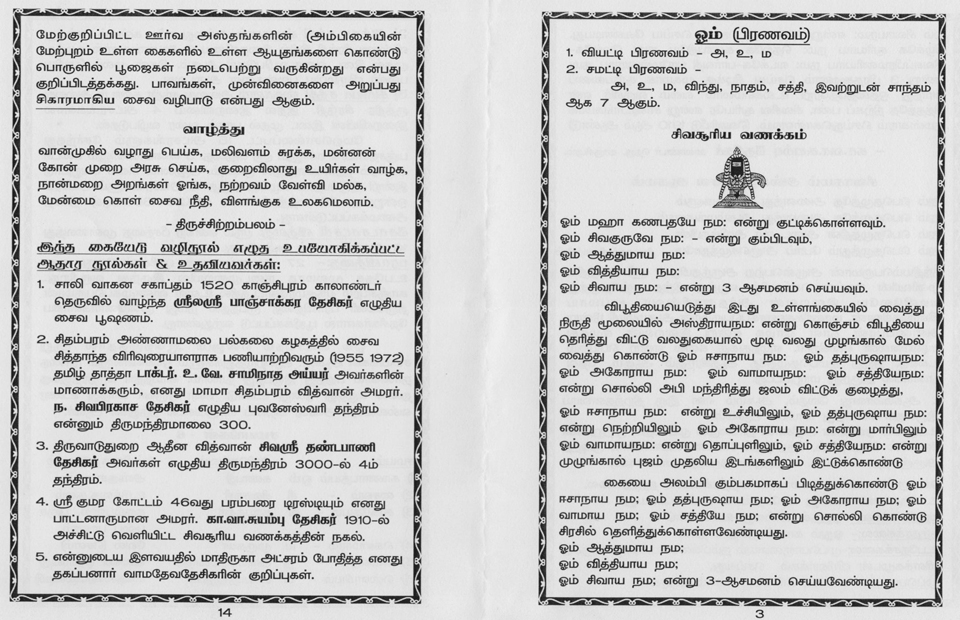 மேற்குறிப்பிட்ட ஊர்வ அஸ்தங்களின் (அம்பிகையின்
மேற்புறம் உள்ள கைகளில் உள்ள ஆயுதங்களை கொண்டு
பொருளில் பூஜைகள் நடைபெற்று வருகின்றது என்பது
குறிப்பிடத்தக்கது. பாவங்கள், முன்வினைகளை அறுப்பது
சிகாரமாகிய சைவ வழிபாடு என்பது ஆகும்.
வாழ்த்து
வான்முகில் வழாது பெய்க, மலிவளம் சுரக்க, மன்னன்
கோன் முறை அரசு செய்க, குறைவிலாது உயிர்கள் வாழ்க,
நான்மறை அறங்கள் ஓங்க, நற்றவம் வேள்வி மல்க,
மேன்மை கொள் சைவ நீதி, விளங்குக உலகமெலாம்.
- திருச்சிற்றம்பலம் -
இந்த கையேடு வழிநூல் எழுத உபயோகிக்கப்பட்ட
ஆதார நூல்கள் & உதவியவர்கள்:
1. சாலி வாகன சகாப்தம் 1520 காஞ்சிபுரம் காலாண்டர்
தெருவில் வாழ்ந்த ஸ்ரீலஸ்ரீ பாஞ்சாக்கர தேசிகர் எழுதிய
சைவ பூஷணம்.
2. சிதம்பரம் அண்ணாமலை பல்கலை கழகத்தில் சைவ
சித்தாந்த விரிவுரையாளராக பணியாற்றிவரும் (1955 1972)
தமிழ் தாத்தா பாக்டர். உ. வே. சாமிநாத அய்யர் அவர்களின்
மாணாக்கரும், எனது மாமா சிதம்பரம் வித்வான் அமரர்.
ந. சிவபிரகாச தேசிகர் எழுதிய புவனேஸ்வரி தந்திரம்
என்னும் திருமந்திரமாலை 300.
3. திருவாடுதுறை ஆதீன வித்வான் சிவஸ்ரீ தண்டபாணி
தேசிகர் அவர்கள் எழுதிய திருமந்திரம் 3000-ல் 4ம்
தந்திரம்.
4. ஸ்ரீ குமர கோட்டம் 46வது பரம்பரை டிரஸ்டியும் எனது
பாட்டனாருமான அமரர். கா.வா.சுயம்பு தேசிகர் 1910-ல்
அச்சிட்டு வெளியிட்ட சிவசூரிய வணக்கத்தின் நகல்.
5. என்னுடைய இளவயதில் மாதிருகா அட்சரம் போதித்த எனது
தகப்பனார் வாமதேவதேசிகரின் குறிப்புகள்.
14
ஓம் (பிரணவம்)
1. வியட்டி பிரணவம் - அ, உ, ம
2. சமட்டி பிரணவம் -
அ, உ, ம, விந்து, நாதம், சத்தி, இவற்றுடன் சாந்தம்
ஆக 7 ஆகும்.
சிவசூரிய வணக்கம்
ஓம் மஹா கணபதயே நம: என்று குட்டிக்கொள்ளவும்.
ஓம் சிவகுருவே நம: - என்று கும்பிடவும்,
ஓம் ஆத்துமாய நம:
ஓம் வித்தியாய நம:
ஓம் சிவாய நம: - என்று 3 ஆசமனம் செய்யவும்.
விபூதியையெடுத்து இடது உள்ளங்கையில் வைத்து
நிருதி மூலையில் அஸ்திராயநம: என்று கொஞ்சம் விபூதியை
தெரித்து விட்டு வலதுகையால் மூடி வலது முழங்கால் மேல்
வைத்து கொண்டு ஓம் ஈசாநாய நம: ஓம் தத்புருஷாயநம:
ஓம் அகோராய நம: ஓம் வாமாயநம: ஓம் சத்தியேநம:
என்று சொல்லி அபி மந்திரித்து ஜலம் விட்டுக் குழைத்து,
ஓம் ஈசாநாய நம: என்று உச்சியிலும், ஓம் தத்புருஷாய நம:
என்று நெற்றியிலும் ஓம் அகோராய நம: என்று மார்பிலும்
ஓம் வாமாயநம: என்று தொப்புளிலும், ஓம் சத்தியேநம: என்று
முழுங்கால் புஜம் முதலிய இடங்களிலும் இட்டுக்கொண்டு
கையை அலம்பி கும்பகமாகப் பிடித்துக்கொண்டு ஓம்
ஈசாநாய நம; ஓம் தத்புருஷாய நம; ஓம் அகோராய நம; ஓம்
வாமாய நம; ஓம் சத்தியே நம; என்று சொல்லி கொண்டு
சிரசில் தெளித்துக்கொள்ளவேண்டியது.
ஓம் ஆத்துமாய நம;
ஓம் வித்தியாய நம;
ஓம் சிவாய நம; என்று 3-ஆசமனம் செய்யவேண்டியது.
3